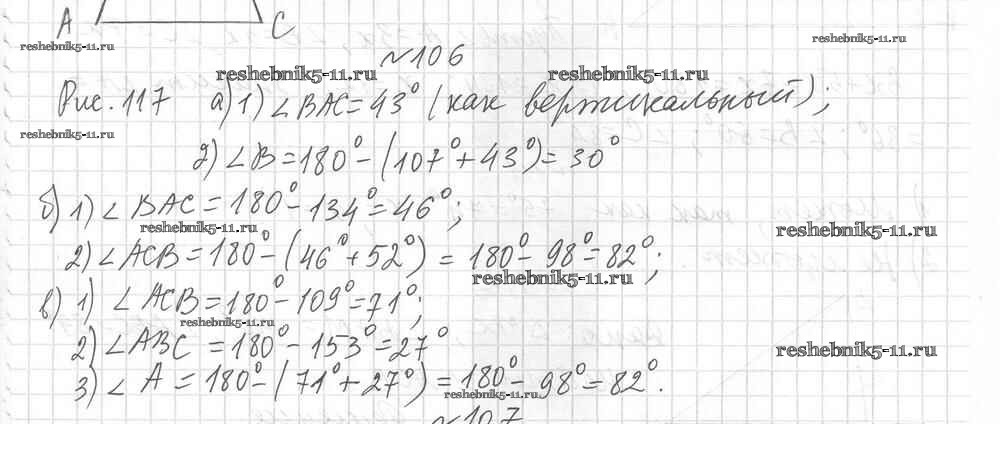 A C
reshebnik5-11.ru reshebnik5-11.ru
№106
reshebnik5-11.ru reshebnik5-11.ru
Рис. 117 а) 1) ∠BAC = 43° (как вертикальный);
reshebnik5-11.ru
2) ∠B = 180° - (107° + 43°) = 30°
б) 1) ∠BAC = 180° - 134° = 46°;
reshebnik5-11.ru reshebnik5-11.ru
2) ∠ACB = 180° - (46° + 52°) = 180° - 98° = 82°;
reshebnik5-11.ru
в) 1) ∠ACB = 180° - 109° = 71°;
reshebnik5-11.ru
2) ∠ABC = 180° - 153° = 27°
reshebnik5-11.ru
3) ∠A = 180° - (71° + 27°) = 180° - 98° = 82°.
reshebnik5-11.ru
№107